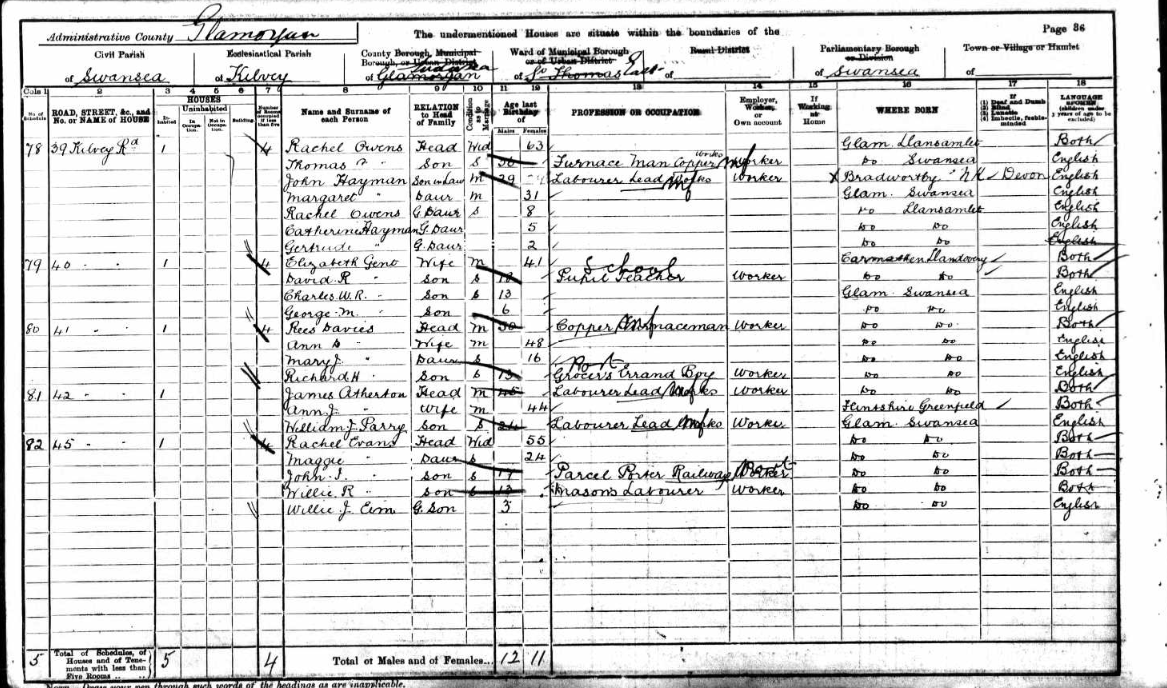 Administrative County Glamorgan The undermentioned Houses are situate within the boundaries of the Page 36
Civil Parish Ecclesiastical Parish County Borough, Municipal Borough, or Urban District Ward of Municipal Borough or of Urban District Rural District Parliamentary Borough or Division Town or Village or Hamlet
of Swansea of Kilvey of Glamorgan Swansea of St Thomas East of of Swansea of
Cols 1 2 3 4 5 6 7 8 9 10 11 12 13 14 15 16 17 18
No. of Schedule ROAD, STREET, &c., and No. or NAME of HOUSE HOUSES Inhabited Uninhabited In Occupation. Not in Occupation. Building Number of Rooms occupied if less than five Name and Surname of each Person RELATION to Head of Family Condition as to Marriage Age last Birthday of Males Females PROFESSION OR OCCUPATION Employer, Worker, or Own account If Working at Home WHERE BORN If (1) Deaf and Dumb (2) Blind (3) Lunatic (4) Imbecile, feeble-minded LANGUAGE SPOKEN (children under 3 years of age to be excluded)
78 39 Kilvey Rd 1 4 Rachel Owens Head Wid 63 Glam. Llansamlet Both
Thomas " Son S Furnace Man Copper Works Worker Do Swansea English
John Hayman Son in Law M 29 Labourer Lead Works Worker Bradworthy N.K. Devon English
Margaret " Daur M 31 Glam. Swansea English
Rachel Owens G. Daur S 8 Do Llansamlet English
Catherine Hayman G. Daur 5 Do Do English
Gertrude " G. Daur 2 Do Do English
79 40 " " 1 4 Elizabeth Geno Wife M 41 Carmarthen Llandovery Both
David R " Son S School Pupil Teacher Worker Do Do Both
Charles W. R. " Son S 13 Glam. Swansea English
George M. " Son 6 Do Do English
80 41 " " 1 4 Rees Davies Head M 50 Copper Furnaceman Worker Do Do Both
Ann " Wife M 48 Do Do English
Mary J. " Daur S 16 Do Do English
Richard H " Son S 13 Port Grocer's Errand Boy Worker Do Do English
81 42 " " 1 James Atherton Head M 45 Labourer Lead Works Worker Do Do Both
Ann J. " Wife M 44 Flintshire Greenfield Both
William J. Parry Son S 24 Labourer Lead Works Worker Glam. Swansea English
82 45 " " 1 4 Rachel Evans Head Wid 55 Do Do Both
Maggie " Daur S 24 Do Do Both
John I. " Son S 17 Parcel Porter Railway Worker Do Do Both
Willie R " Son S 13 Mason's Labourer Worker Do Do Both
Willie J. G. Son 3 Do Do English
5 Total of Schedules, of Houses and of Tenements with less than Five Rooms 5 4 Total of Males and of Females... 12 11
Note—Draw your pen through such words of the headings as are inapplicable.